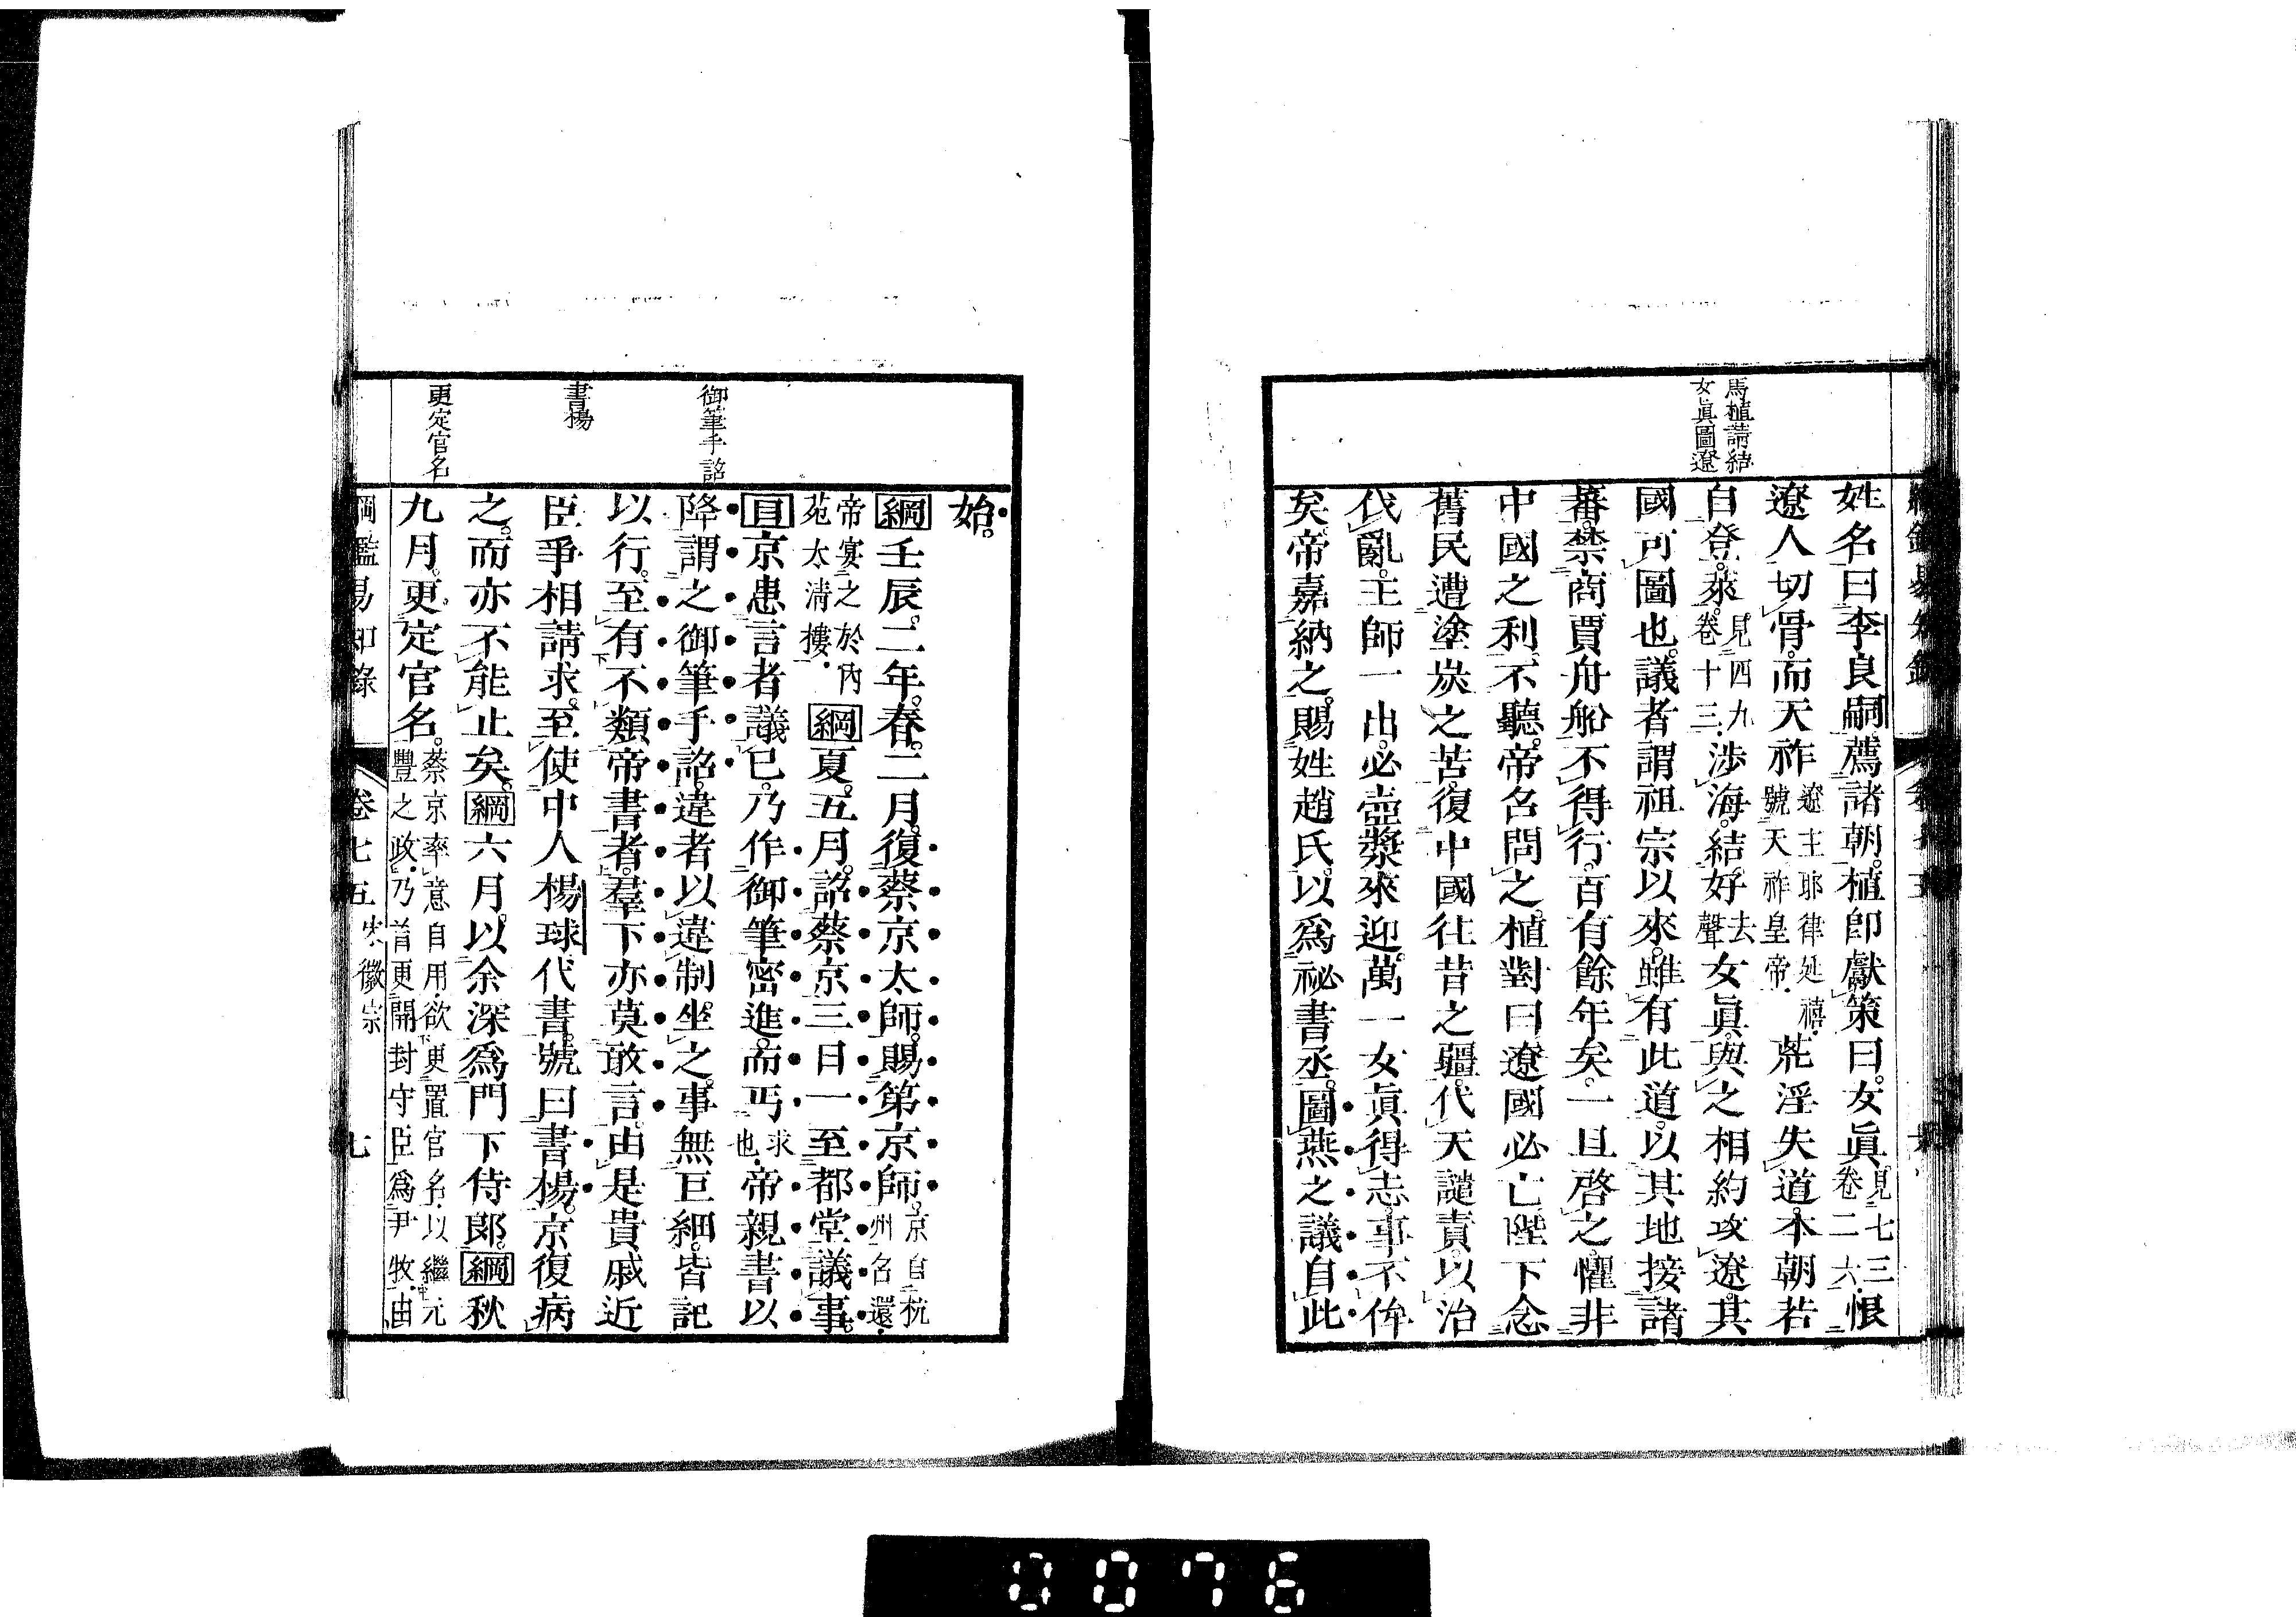 馬植請結
女眞圖遼
姓名曰李良嗣薦諸朝。植卽獻策曰。女眞。見七三卷二六。恨
遼人切骨。而天祚遼主耶律延禧。號天祚皇帝。荒淫失道。本朝若
自登。萊。見四九卷十三。渉海。結好去聲女眞。與之相約攻遼。其
國可圖也。議者謂祖宗以來。雖有此道。以其地接諸
蕃。禁商賈舟船不得行。百有餘年矣。一旦啓之。懼非
中國之利。不聽。帝召問之。植對曰。遼國必亡。陛下念
舊民遭塗炭之苦。復中國往昔之疆。代天譴責。以治
伐亂。王師一出。必壺漿來迎。萬一女眞得志。事不侔
矣。帝嘉納之。賜姓趙氏。以爲祕書丞。圖燕之議自此
始。
綱壬辰。二年。春。二月。復蔡京太師。賜第京師。京自杭州召還。
帝宴之於內苑太淸樓。綱夏。五月。詔蔡京三日一至都堂議事。
目京患言者議已。乃作御筆密進。而丐求也。帝親書以
降。謂之御筆手詔。違者以違制坐之。事無巨細。皆記
以行。至有不類帝書者。羣下亦莫敢言。由是貴戚近
臣爭相請求。至使中人楊球代書。號曰書楊。京復病
之。而亦不能止矣。綱六月。以余深爲門下侍郞。綱秋
九月。更定官名。蔡京率意自用。欲更置官名。以繼元豐之政。乃首更開封守臣爲尹牧。由
御筆手詔
書楊
更定官名
綱鑑易知錄
卷七五
宋徽宗
七
0076